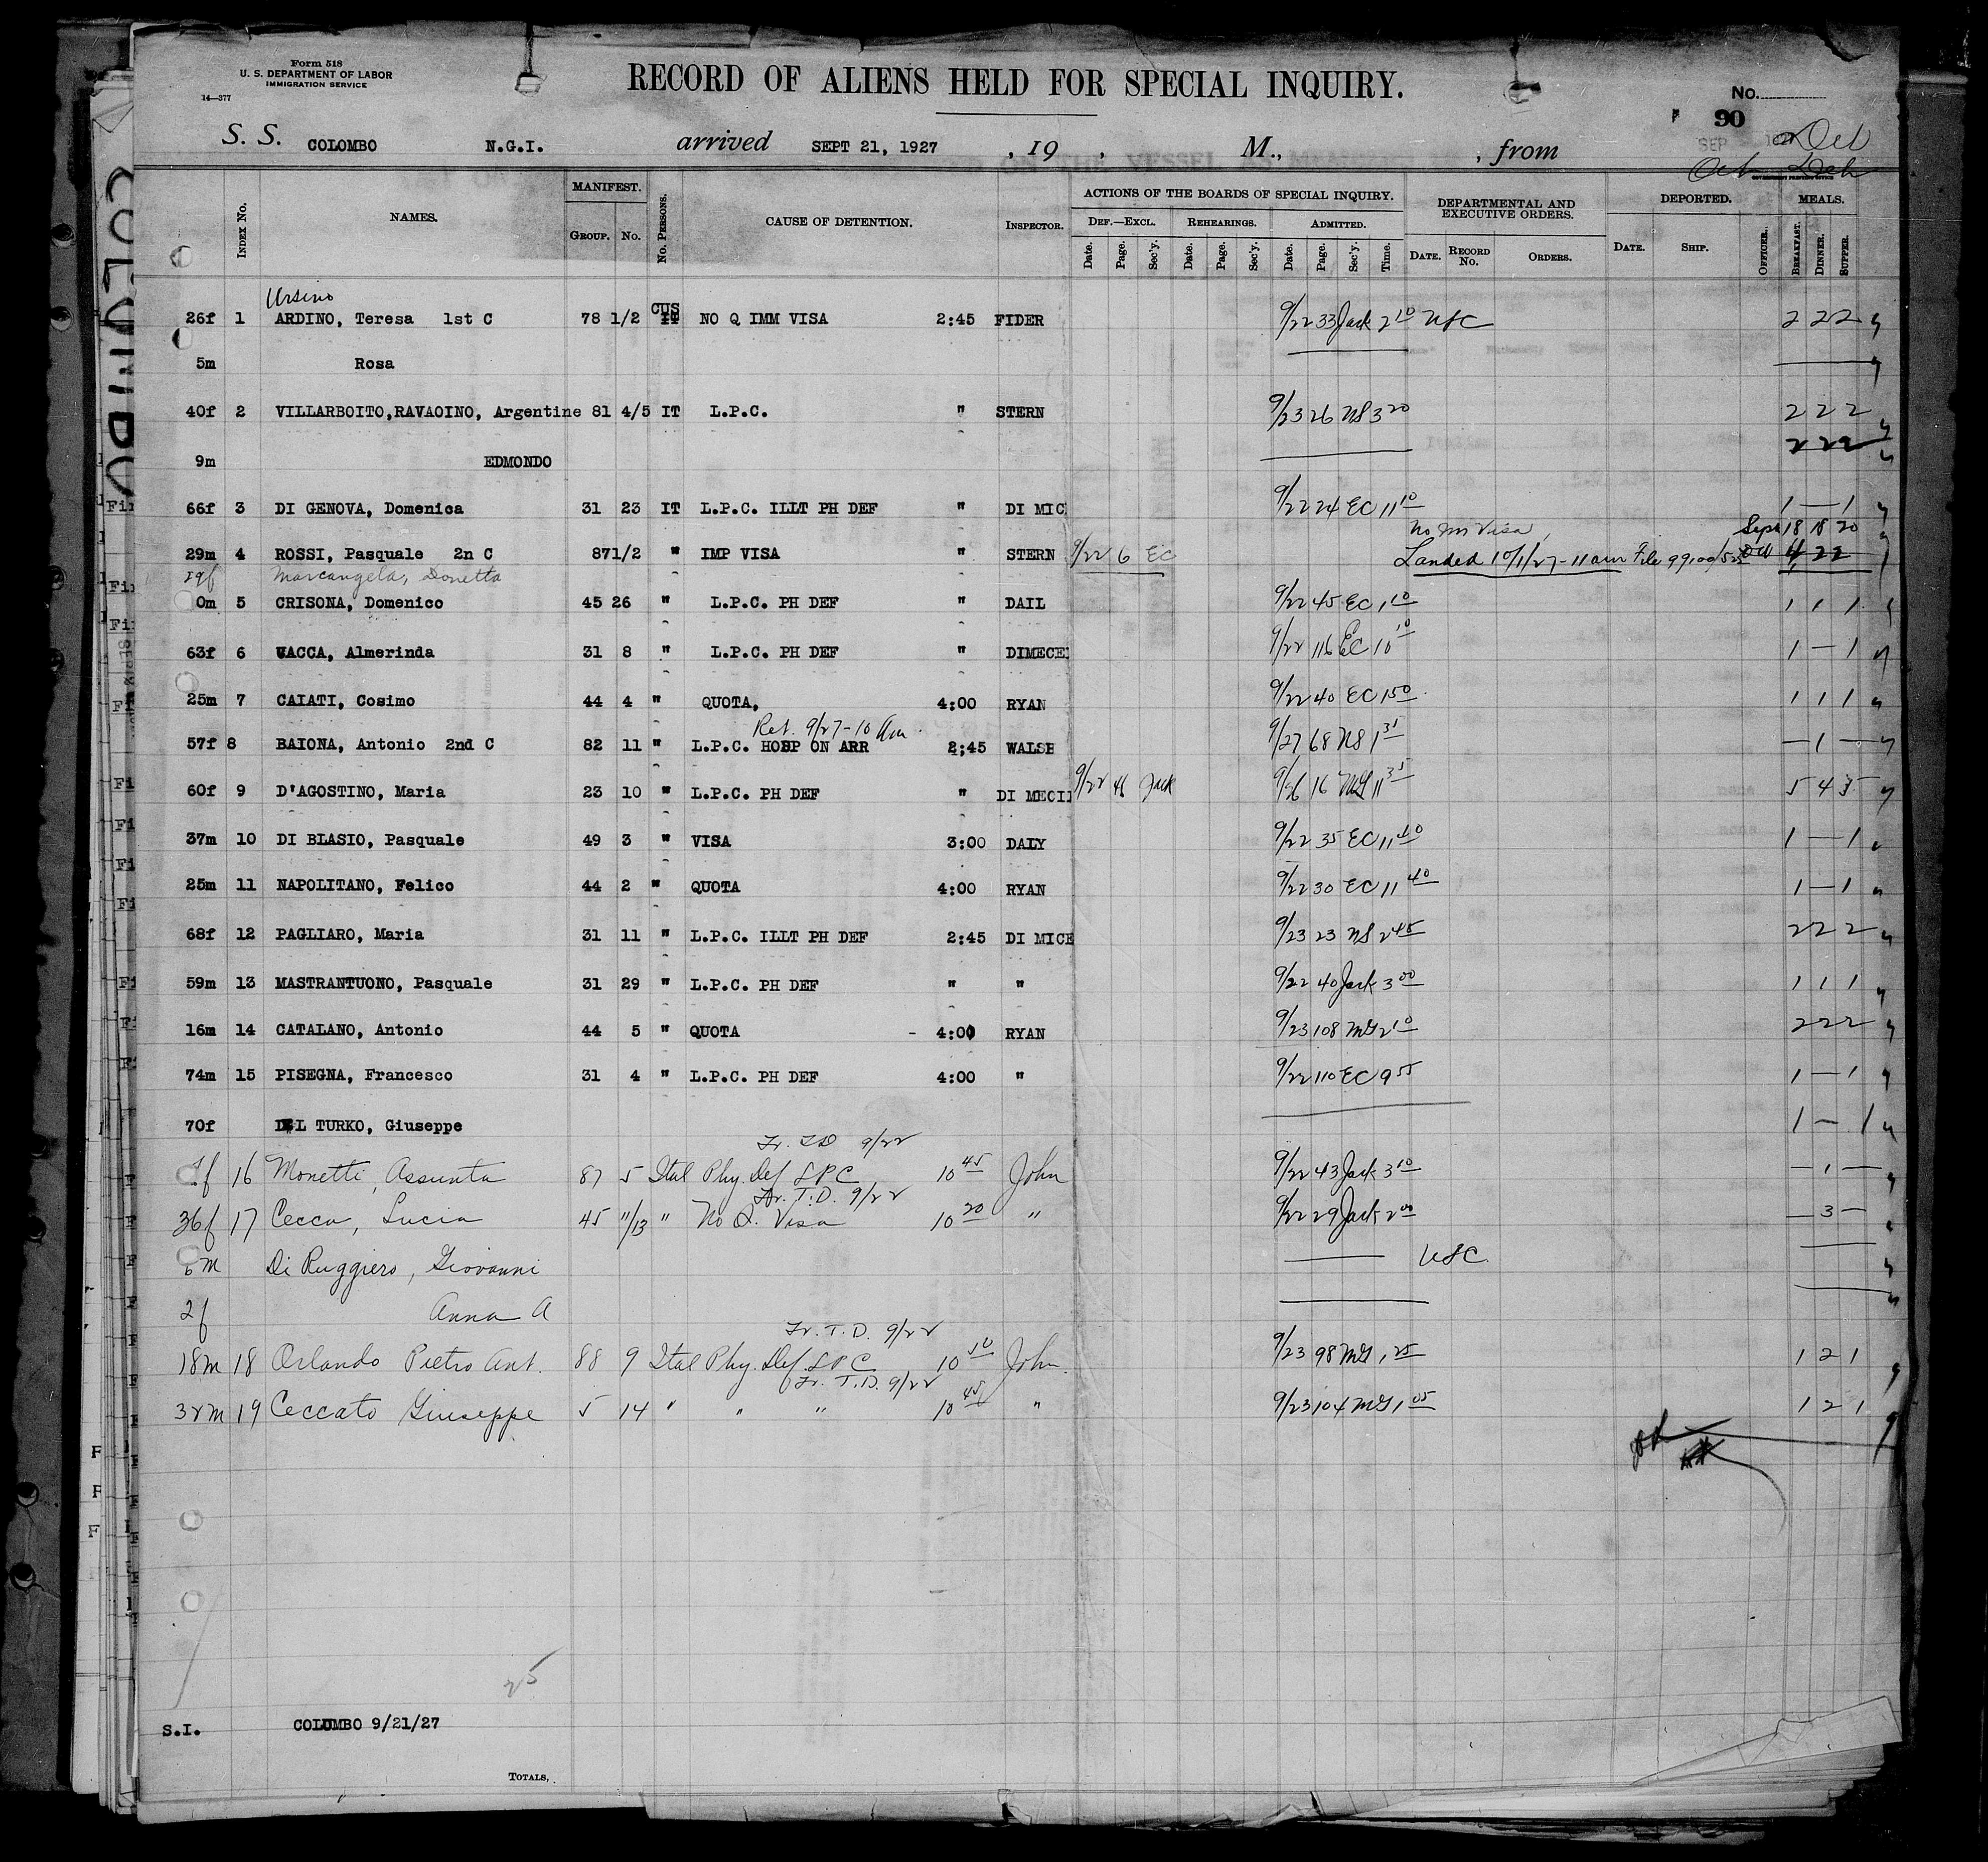 Form 518
U. S. DEPARTMENT OF LABOR
IMMIGRATION SERVICE
14—377
RECORD OF ALIENS HELD FOR SPECIAL INQUIRY.
No.
90
S. S. COLOMBO N.G.I. arrived SEPT 21, 1927 , 19 , M., , from
Index No. NAMES. MANIFEST. Group. No. No. Persons. CAUSE OF DETENTION. Inspector. ACTIONS OF THE BOARDS OF SPECIAL INQUIRY. DEPARTMENTAL AND EXECUTIVE ORDERS. DEPORTED. MEALS.
Def.—Excl. Rehearings. Admitted.
Date. Page. Sec'y. Date. Page. Sec'y. Date. Page. Sec'y. Time. Date. Record No. Orders. Date. Ship. Officer. Breakfast. Dinner. Supper.
Ursino
26f 1 ARDINO, Teresa 1st C 78 1/2 CUS IT NO Q IMM VISA 2:45 FIDER 9/22 33 Jack 2 10 USC 2 2 2
5m Rosa
40f 2 VILLARBOITO,RAVAOINO, Argentine 81 4/5 IT L.P.C. " STERN 9/23 26 NS 3 20 2 2 2
9m EDMONDO 2 2 2
66f 3 DI GENOVA, Domenica 31 23 IT L.P.C. ILLT PH DEF " DI MIC 9/22 24 EC 11 10 1 — 1
No Im Visa, Sept 18 18 20
29m 4 ROSSI, Pasquale 2n C 87 1/2 " IMP VISA " STERN 9/22 6 EC Landed 10/1/27 - 11 am File 99100/ Oct 4 2 2
29f Marcangela, Donetta
0m 5 CRISONA, Domenico 45 26 " L.P.C. PH DEF " DAIL 9/22 45 EC 1 10 1 1 1
63f 6 VACCA, Almerinda 31 8 " L.P.C. PH DEF " DIMECEI 9/22 116 EC 10 10 1 — 1
25m 7 CAIATI, Cosimo 44 4 " QUOTA, 4:00 RYAN 9/22 40 EC 1 50 1 1 1
Ret. 9/27 - 10 am
57f 8 BAIONA, Antonio 2nd C 82 11 " L.P.C. HOSP ON ARR 2:45 WALSH 9/27 68 NS 1 35 — 1 —
60f 9 D'AGOSTINO, Maria 23 10 " L.P.C. PH DEF " DI MECII 9/22 46 Jack 9/26 16 MG 11 35 5 4 5
37m 10 DI BLASIO, Pasquale 49 3 " VISA 3:00 DALY 9/22 35 EC 11 40 1 — 1
25m 11 NAPOLITANO, Felico 44 2 " QUOTA 4:00 RYAN 9/22 30 EC 11 40 1 — 1
68f 12 PAGLIARO, Maria 31 11 " L.P.C. ILLT PH DEF 2:45 DI MICE 9/23 23 NS 2 45 2 2 2
59m 13 MASTRANTUONO, Pasquale 31 29 " L.P.C. PH DEF " " 9/22 40 Jack 3 00 1 1 1
16m 14 CATALANO, Antonio 44 5 " QUOTA - 4:00 RYAN 9/23 108 MG 2 10 2 2 2
74m 15 PISEGNA, Francesco 31 4 " L.P.C. PH DEF 4:00 " 9/22 110 EC 9 55 1 — 1
70f DEL TURKO, Giuseppe 1 — 1
Tr. T.D. 9/22
f 16 Monetti, Assunta 87 5 Ital Phy. Def LPC 10 45 John 9/22 43 Jack 3 10 — 1 —
Tr. T.D. 9/22
36f 17 Cecca, Lucia 45 11/13 " No Q. Visa 10 20 " 9/22 29 Jack 2 00 — 3 —
6m Di Ruggiero, Giovanni USC
2f Anna A
Tr. T.D. 9/22
18m 18 Orlando Pietro Ant. 88 9 Ital Phy. Def. LPC 10 50 John 9/23 98 MG 1 25 1 2 1
Tr. T.D. 9/22
32m 19 Ceccato Giuseppe 5 14 " " " 10 45 " 9/23 104 MG 1 05 1 2 1
25
S.I. COLUMBO 9/21/27
Totals,